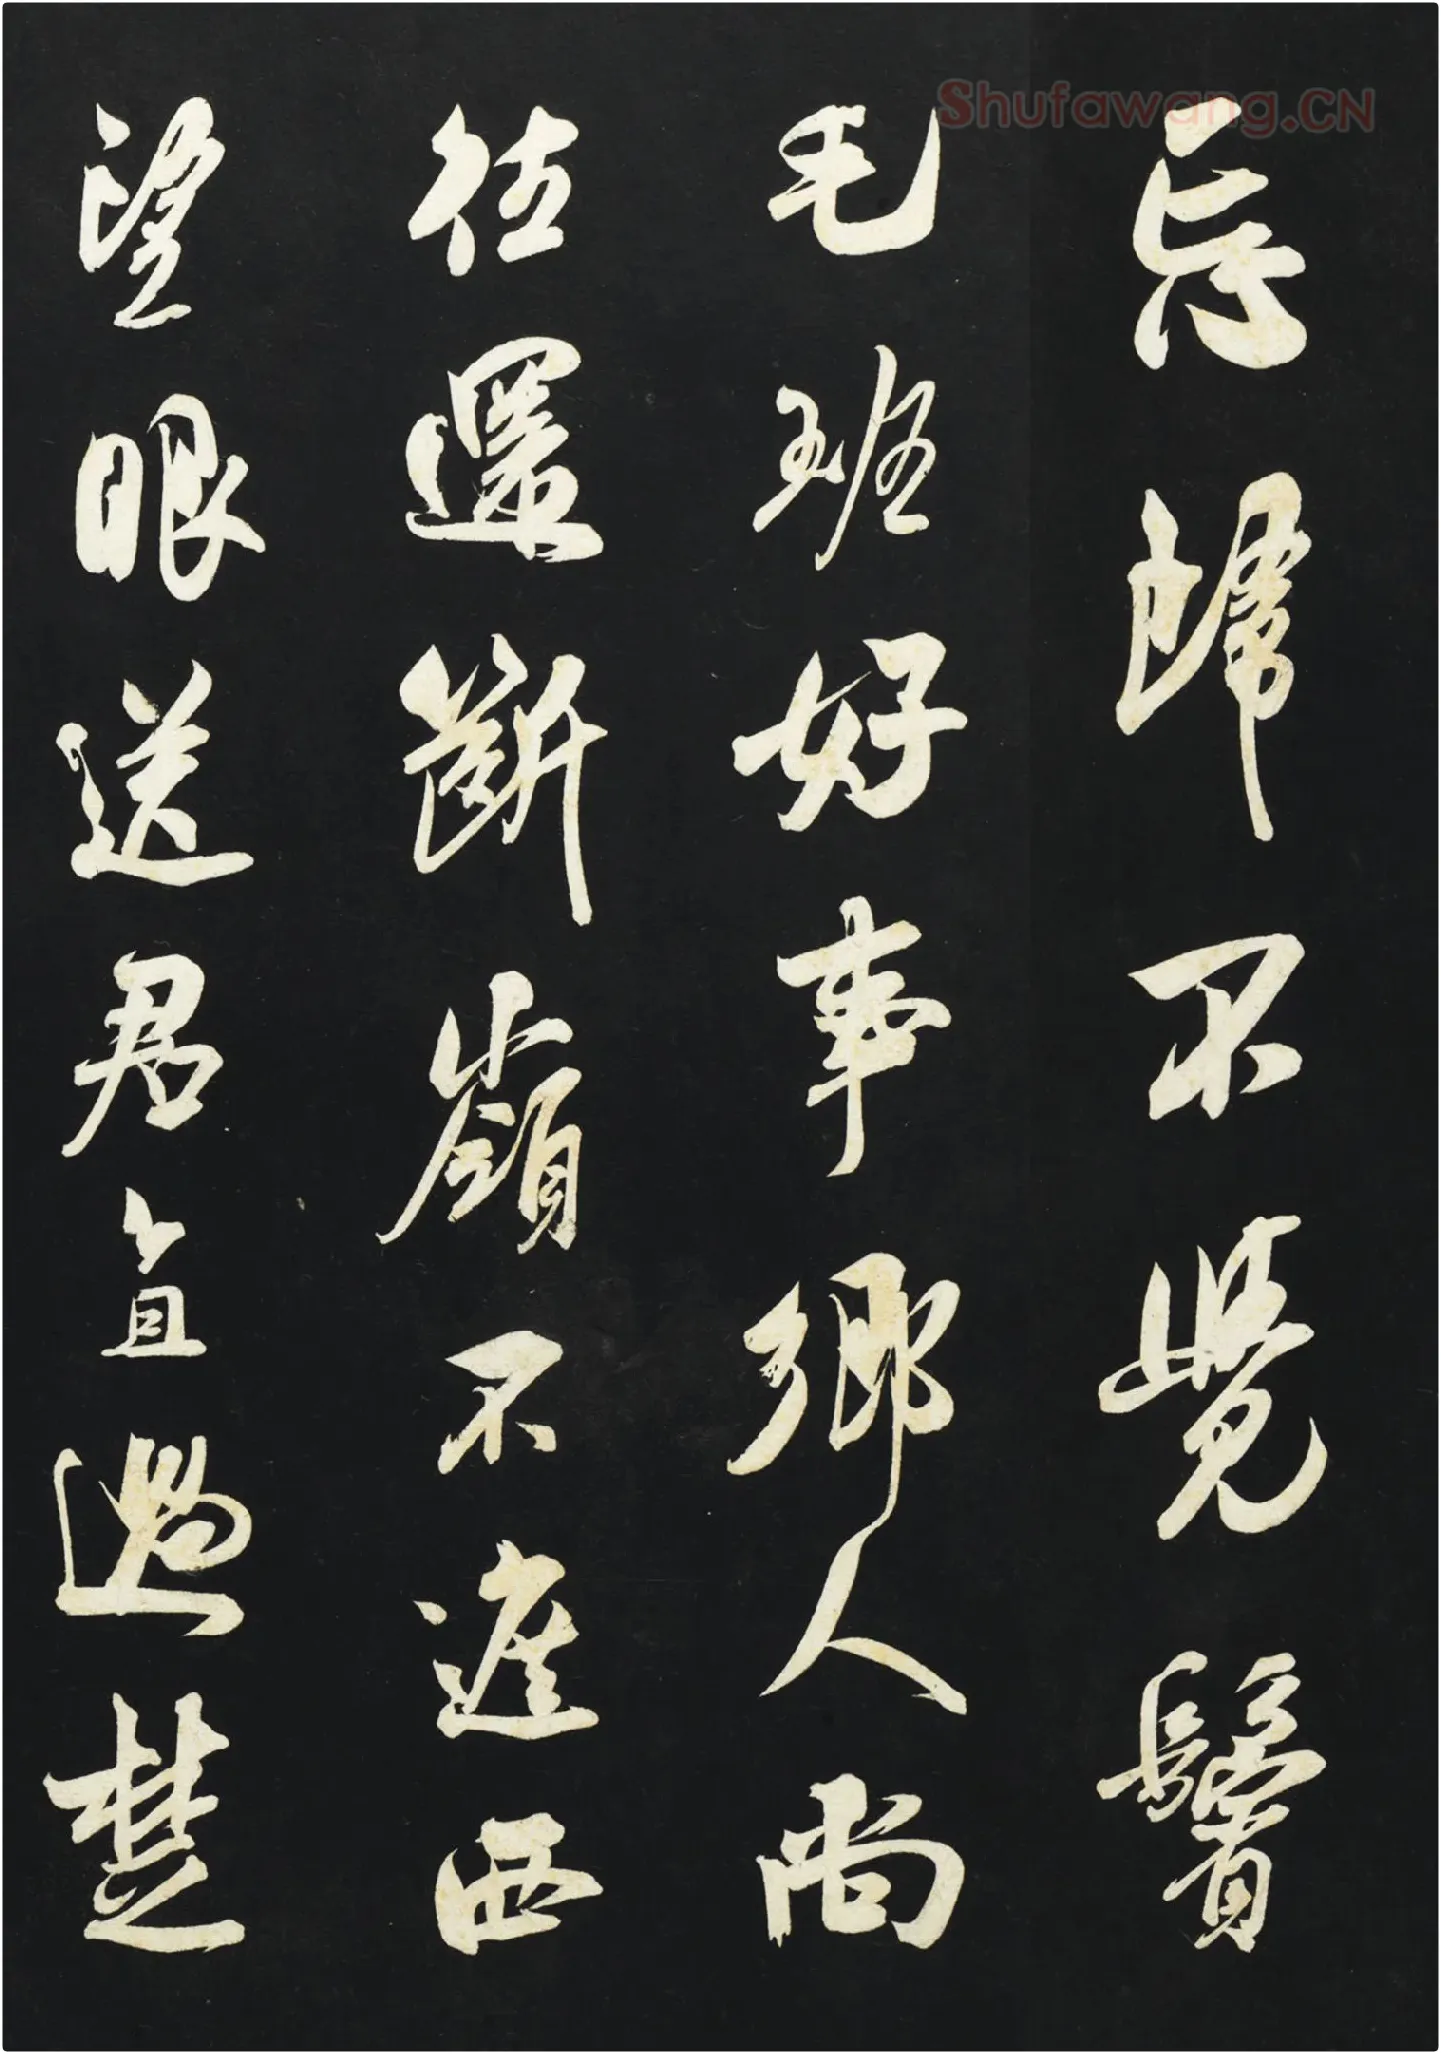 忘歸不覺鬢
毛班好事鄉人尚
往還斷嶺不遮西
望眼送君直過楚
Shufawang.CN